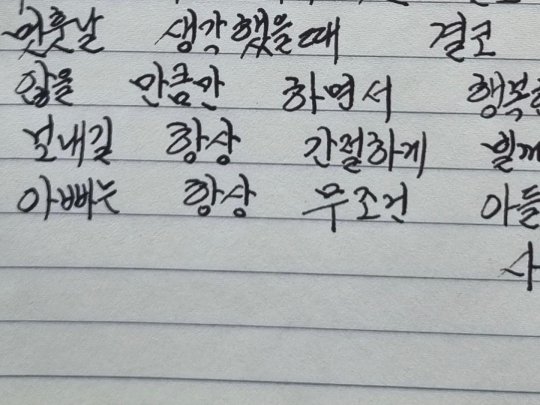 먼훗날 생각했을때 결코
않을 만큼만 하면서 행복
보내길 항상 간절하게
아빠는 항상 무조건 아들
사